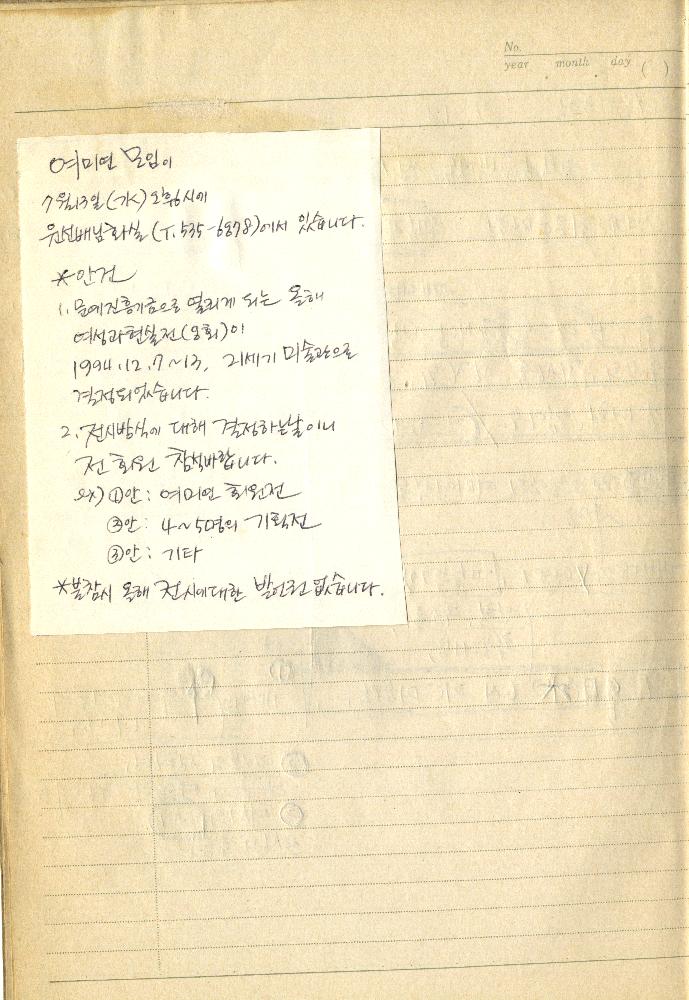 No.
year month day ( )
여미연 모임이
7월13일(수) 오후6시에
윤선배님 화실 (T.535-6878)에서 있습니다.
*안건
1. 문예진흥기금으로 열리게 되는 올해
여성과현실전(8회)이
1994.12.7~13, 21세기 미술관으로
결정되었습니다.
2. 전시방식에 대해 결정하는날이니
전 회원 참석바랍니다.
ex) ①안: 여미연 회원전
②안: 4~5명의 기획전
③안: 기타
*불참시 올해 전시에대한 발언권 없습니다.